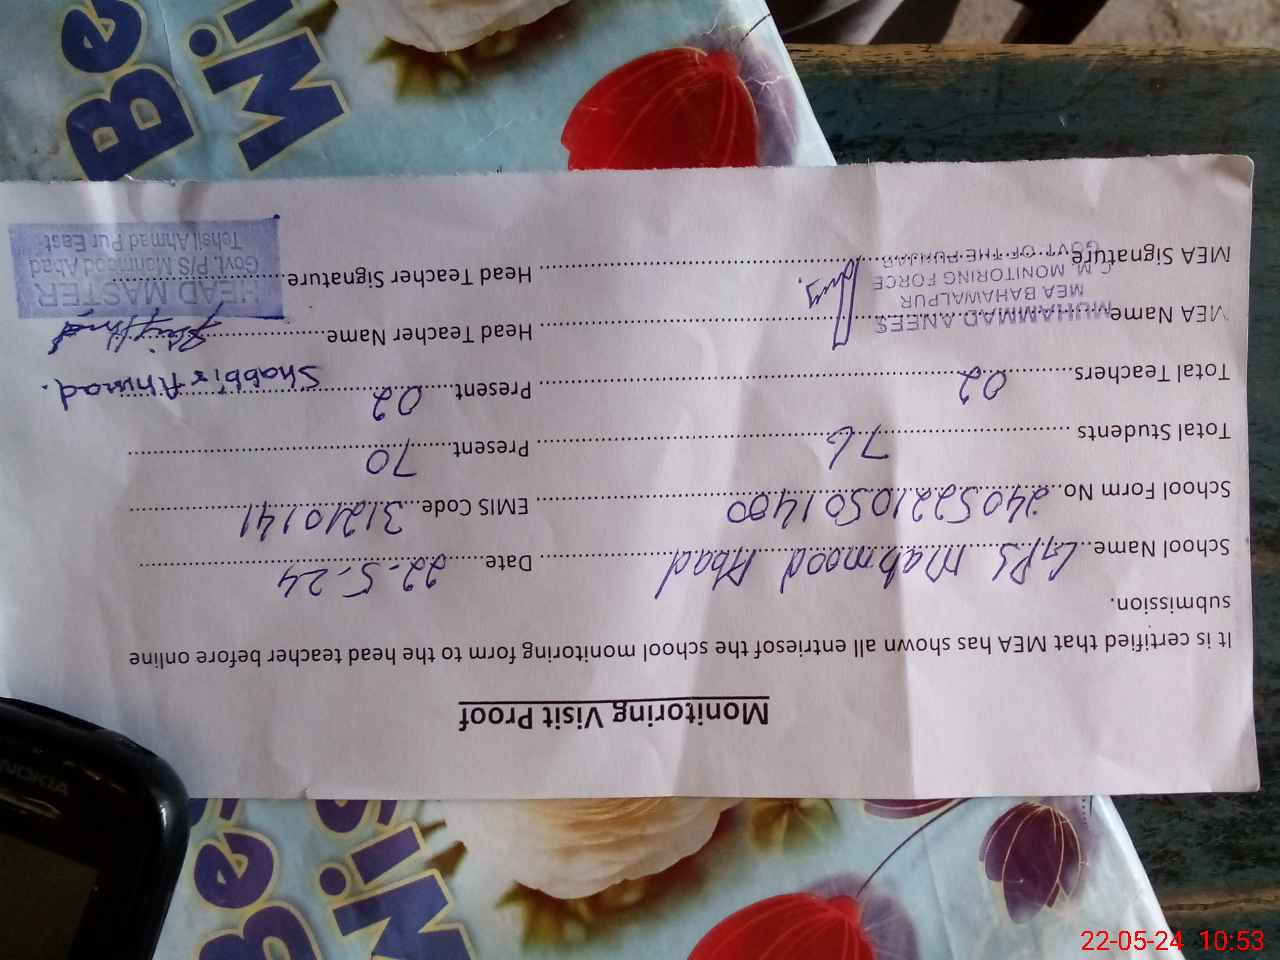 Monitoring Visit Proof
It is certified that MEA has shown all entriesof the school monitoring form to the head teacher before online
submission.
School Name GPS Mahmood Abad Date 22.5.24
School Form No 24052210501400 EMIS Code 31210141
Total Students 76 Present 70
Total Teachers 02 Present 02
MEA Name Head Teacher Name Shabbir Ahmad.
MUHAMMAD ANEES
MEA BAHAWALPUR
C.M. MONITORING FORCE
GOVT OF THE PUNJAB
MEA Signature Head Teacher Signature
HEAD MASTER
Govt. P/S Mahmood Abad
Tehsil Ahmad Pur East
NOKIA
Be
Wi
Bes
Wis
22-05-24 10:53